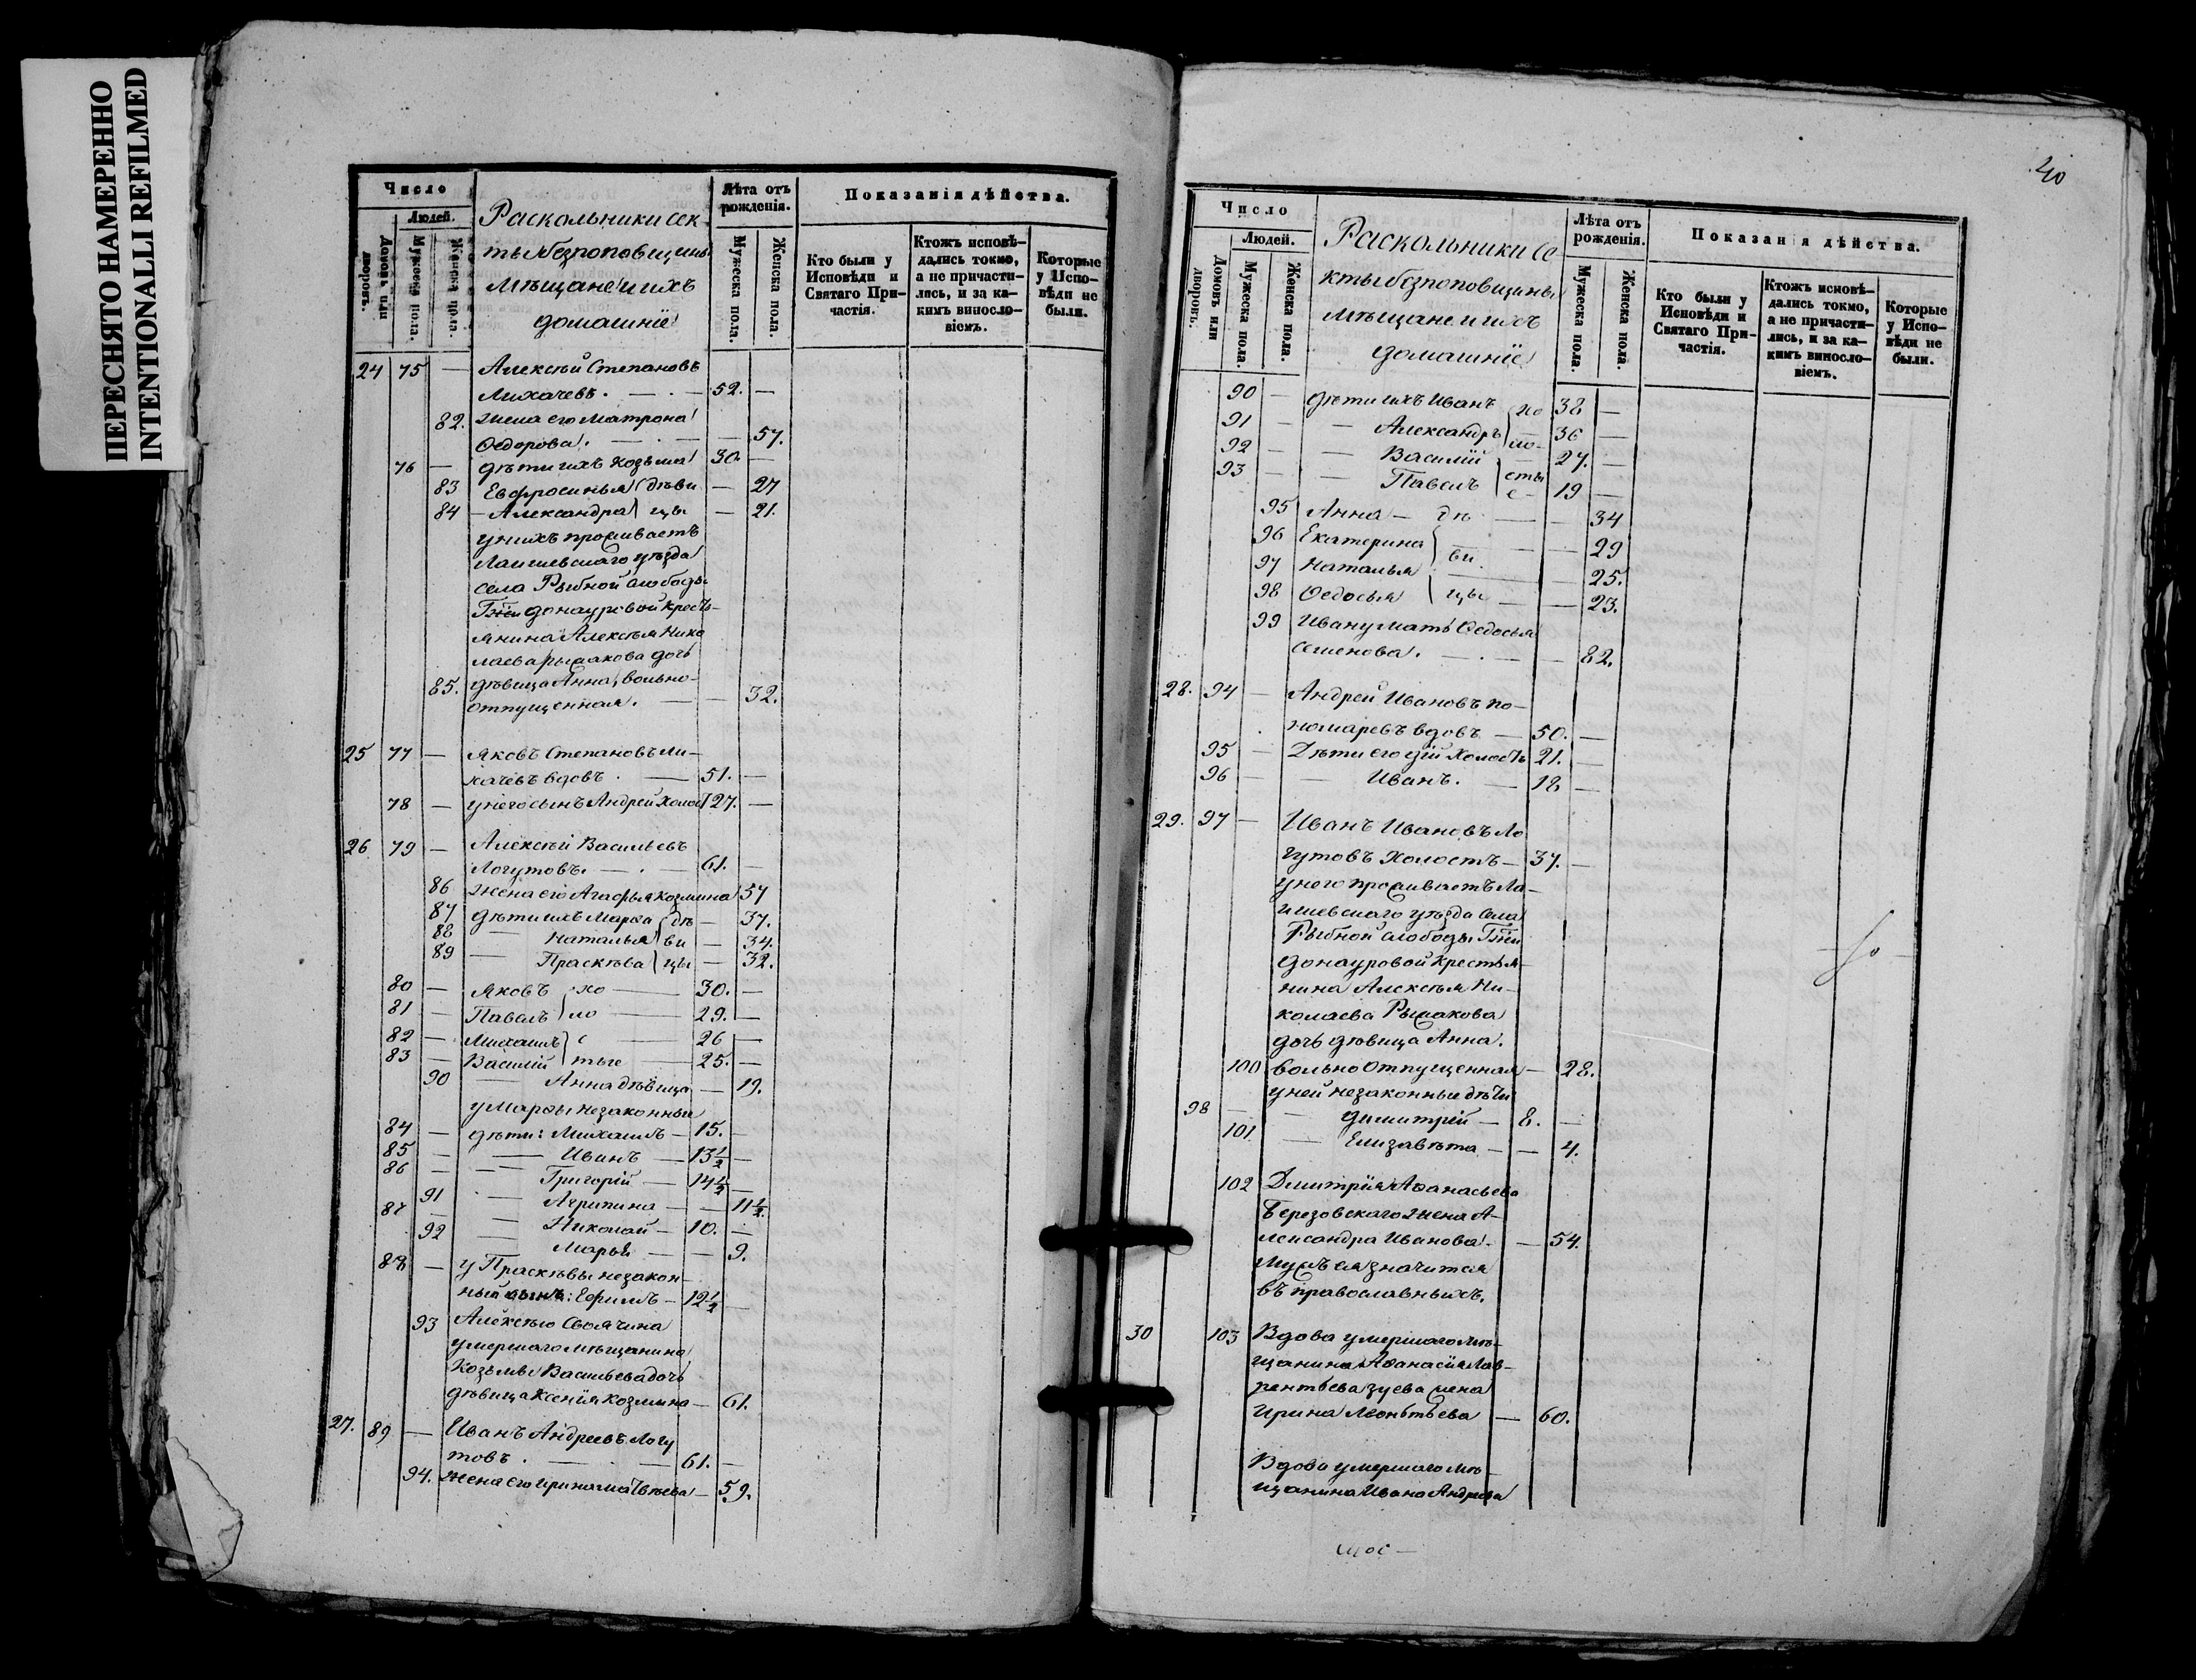 ПЕРЕСНЯТО НАМЕРЕННО
INTENTIONALLI REFILMED
Число
Людей.
Домовъ или дворовъ.
Мужеска пола.
Женска пола.
Раскольники сек-
ты безпоповщины
Мѣщане и ихъ
домашніе
Лѣта отъ рожденія.
Мужеска пола.
Женска пола.
Показанія дѣйства.
Кто были у Исповѣди и Святаго При-частія.
Ктожъ исповѣ-дались токмо, а не причасти-лись, и за ка-кимъ винословіемъ.
Которые у Испо-вѣди не были.
24 75 — Алексѣй Степановъ
Лихачевъ. — 52. —
82. Жена его Матрона
Ѳедорова. — — 57.
76 — дѣти ихъ Козьма 30. —
83 Евфросинья дѣви — 27
84 — Александра цы — 21.
у нихъ проживаетъ
Лаишевскаго уѣзда
села Рыбной слободы
Гжи Донауровой кресть-
янина Алексѣя Нико
лаева Рыжакова дочь
85. дѣвица Анна, вольно-
отпущенная. — — 32.
25 77 — Яковъ Степановъ Ли-
хачевъ вдовъ. — 51. —
78 — у него сынъ Андрей холост 27. —
26 79 — Алексѣй Васильевъ
Логутовъ. — 61. —
86 Жена его Агафья Козмина 57
87 дѣти ихъ Марѳа дѣ — 37.
88 — Наталья ви — 34.
89 — Прасковья цы — 32.
80 — Яковъ хо — 30. —
81 — Павелъ ло — 29. —
82 — Михаилъ с — 26 —
83 — Василій тые — 25. —
90 — Анна дѣвица — 19.
у Марѳы незаконные
84 — дѣти: Михаилъ — 15. —
85 — — Иванъ — 13½ —
86 — — Григорій — 14½ —
91 — Агрипина — — 11½.
87 — — Николай — 10. —
92 — Марья — — 9.
88 — у Прасковьи незакон-
ный сынъ: Ефимъ — 12½ —
93 Алексѣю своячина
умершаго мѣщанина
Козьмы Васильева дочь
дѣвица Ксенія Козмина — 61.
27. 89 — Иванъ Андреевъ Логу
товъ. — 61. —
94. Жена его Ирина Матвѣева — 59.
40
Число
Людей.
Домовъ или дворовъ.
Мужеска пола.
Женска пола.
Раскольники се
кты безпоповщины
Мѣщане и ихъ
домашніе
Лѣта отъ рожденія.
Мужеска пола.
Женска пола.
Показанія дѣйства.
Кто были у Исповѣди и Святаго При-частія.
Ктожъ исповѣ-дались токмо, а не причасти-лись, и за ка-кимъ винословіемъ.
Которые у Испо-вѣди не были.
90 — дѣти ихъ Иванъ хо 38 —
91 — — Александръ ло- 36 —
92 — — Василій 27. —
93 — — Павелъ сты е — 19 —
95 Анна — дѣ — — 34
96 Екатерина — — 29
97 Наталья ви — — 25.
98 Ѳедосья цы — — 23.
99 Ивану мать Ѳедосья
Семенова. — — 82.
28. 94 — Андрей Ивановъ По-
номаревъ вдовъ — 50. —
95 — Дѣти его холостъ 21. —
96 — — Иванъ. — 18 —
29. 97 — Иванъ Ивановъ Ло
гутовъ холостъ — 37. —
у него проживаетъ Ла-
ишевскаго уѣзда села
Рыбной слободы Гжи
Донауровой крестья-
нина Алексѣя Ни-
колаева Рыжакова
дочь дѣвица Анна.
100 вольно отпущенная — 28.
у ней незаконные дѣти
98 — — Димитрій — 8. —
101 — Елизавѣта — — 4.
102 Дмитрія Аѳанасьева
Березовскаго жена А-
лександра Иванова. — 54.
Мужъ ея значится
въ православныхъ.
30 103 Вдова умершаго мѣ-
щанина Аѳанасія Лав-
рентьева Зуева жена
Ирина Леонтьева — 60.
Вдова умершаго мѣ-
щанина Ивана Андреева